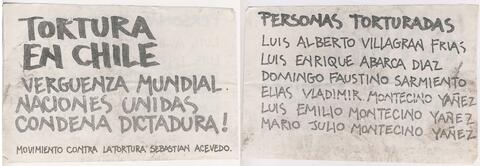 TORTURA
EN CHILE
VERGUENZA MUNDIAL.
NACIONES UNIDAS
CONDENA DICTADURA!
MOVIMIENTO CONTRA LA TORTURA SEBASTIAN ACEVEDO.
PERSONAS TORTURADAS
LUIS ALBERTO VILLAGRAN FRIAS
LUIS ENRIQUE ABARCA DIAZ
DOMINGO FAUSTINO SARMIENTO
ELIAS VLADIMIR MONTECINO YAÑEZ
LUIS EMILIO MONTECINO YAÑEZ
MARIO JULIO MONTECINO YAÑEZ